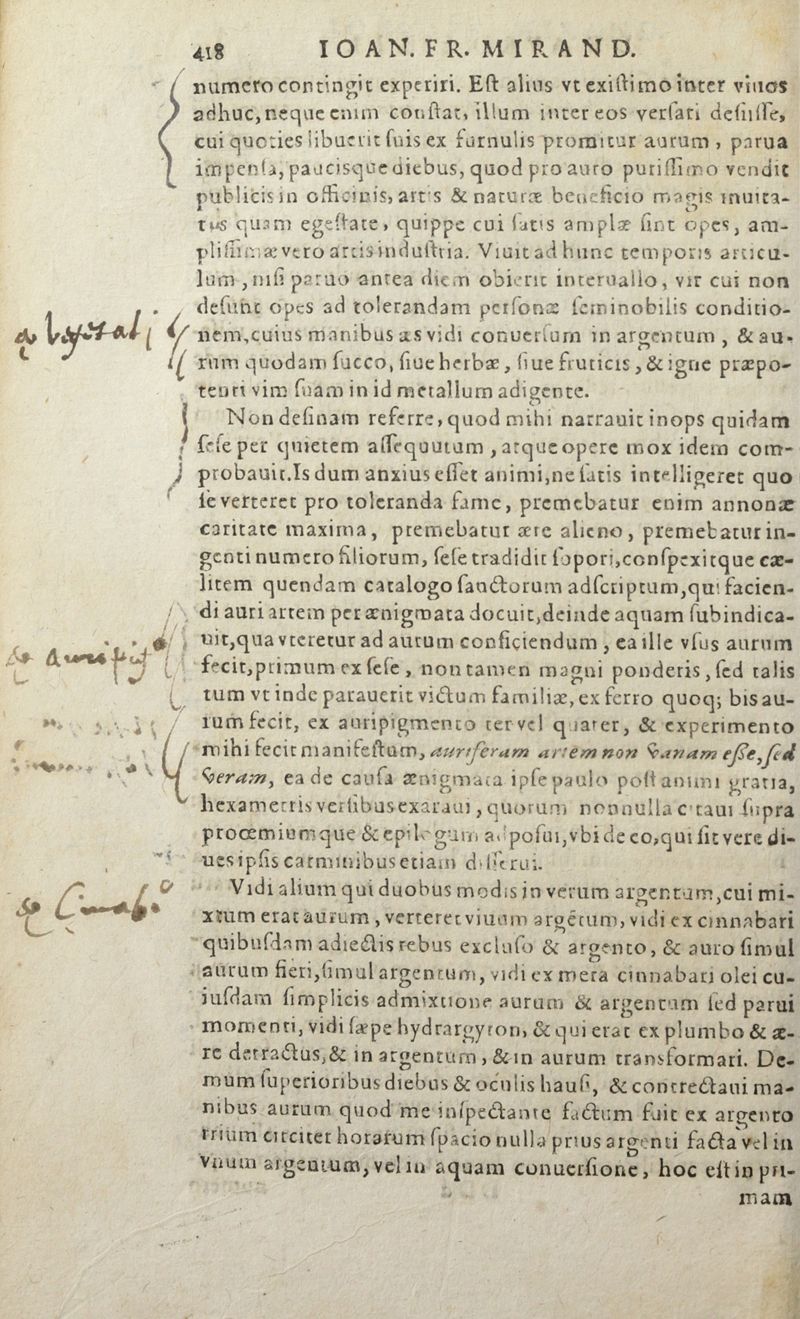 418 IOAN. FR. MIRAND.
numero contingit experiri. Eſt alius vt exiſtimo inter viuos
adhuc, neque enim conſtat, illum inter eos verſari deſiiſſe,
cui quoties libuerit ſuis ex furnulis promitur aurum, parua
impenſa, paucisque diebus, quod pro auro puriſſimo vendit
publicis in officinis, artis & naturæ beneficio magis inuita-
tus quam egeſtate, quippe cui ſatis amplæ ſint opes, am-
pliſſimæ vero artis induſtria. Viuit ad hunc temporis articu-
lum, niſi paruo antea diem obierit interuallo, vir cui non
deſunt opes ad tolerandam perſonæ ſeminobilis conditio-
nem, cuius manibus æs vidi conuerſum in argentum, & au-
rum quodam ſucco, ſiue herbæ, ſiue fruticis, & igne præpo-
tenti vim ſuam in id metallum adigente.
Non deſinam referre, quod mihi narrauit inops quidam
ſeſe per quietem aſſequutum, atque opere mox idem com-
probauit. Is dum anxius eſſet animi, ne ſatis intelligeret quo
ſe verteret pro toleranda fame, premebatur enim annonæ
caritate maxima, premebatur ære alieno, premebatur in-
genti numero filiorum, ſeſe tradidit ſopori, conſpexitque cæ-
litem quendam catalogo ſanctorum adſcriptum, qui facien-
di auri artem per ænigmata docuit, deinde aquam ſubindica-
uit, qua vteretur ad aurum conficiendum, ea ille vſus aurum
fecit, primum ex ſeſe, non tamen magni ponderis, ſed talis
tum vt inde parauerit victum familiæ, ex ferro quoq; bis au-
rum fecit, ex auripigmento ter vel quater, & experimento
mihi fecit manifeſtum, auriferam artem non vanam eſſe, ſed
veram, ea de cauſa ænigmata ipſe paulo poſt animi gratia,
hexametris verſibus exaraui, quorum nonnulla citaui ſupra
procemiumque & epilogum adpoſui, vbi de eo, qui ſit vere di-
ues ipſis carminibus etiam diſſerui.
Vidi alium qui duobus modis in verum argentum, cui mi-
xtum erat aurum, verteret viuum argẽtum, vidi ex cinnabari
quibuſdam adiectis rebus excluſo & argento, & auro ſimul
aurum fieri, ſimul argentum, vidi ex mera cinnabari olei cu-
iuſdam ſimplicis admixtione aurum & argentum ſed parui
momenti, vidi ſæpe hydrargyron, & qui erat ex plumbo & æ-
re detractus, & in argentum, & in aurum transformari. De-
mum ſuperioribus diebus & oculis hauſi, & contrectaui ma-
nibus aurum quod me inſpectante factum fuit ex argento
trium circiter horarum ſpacio nulla prius argenti facta vel in
viuum argentum, vel in aquam conuerſione, hoc eſt in pri-
mam